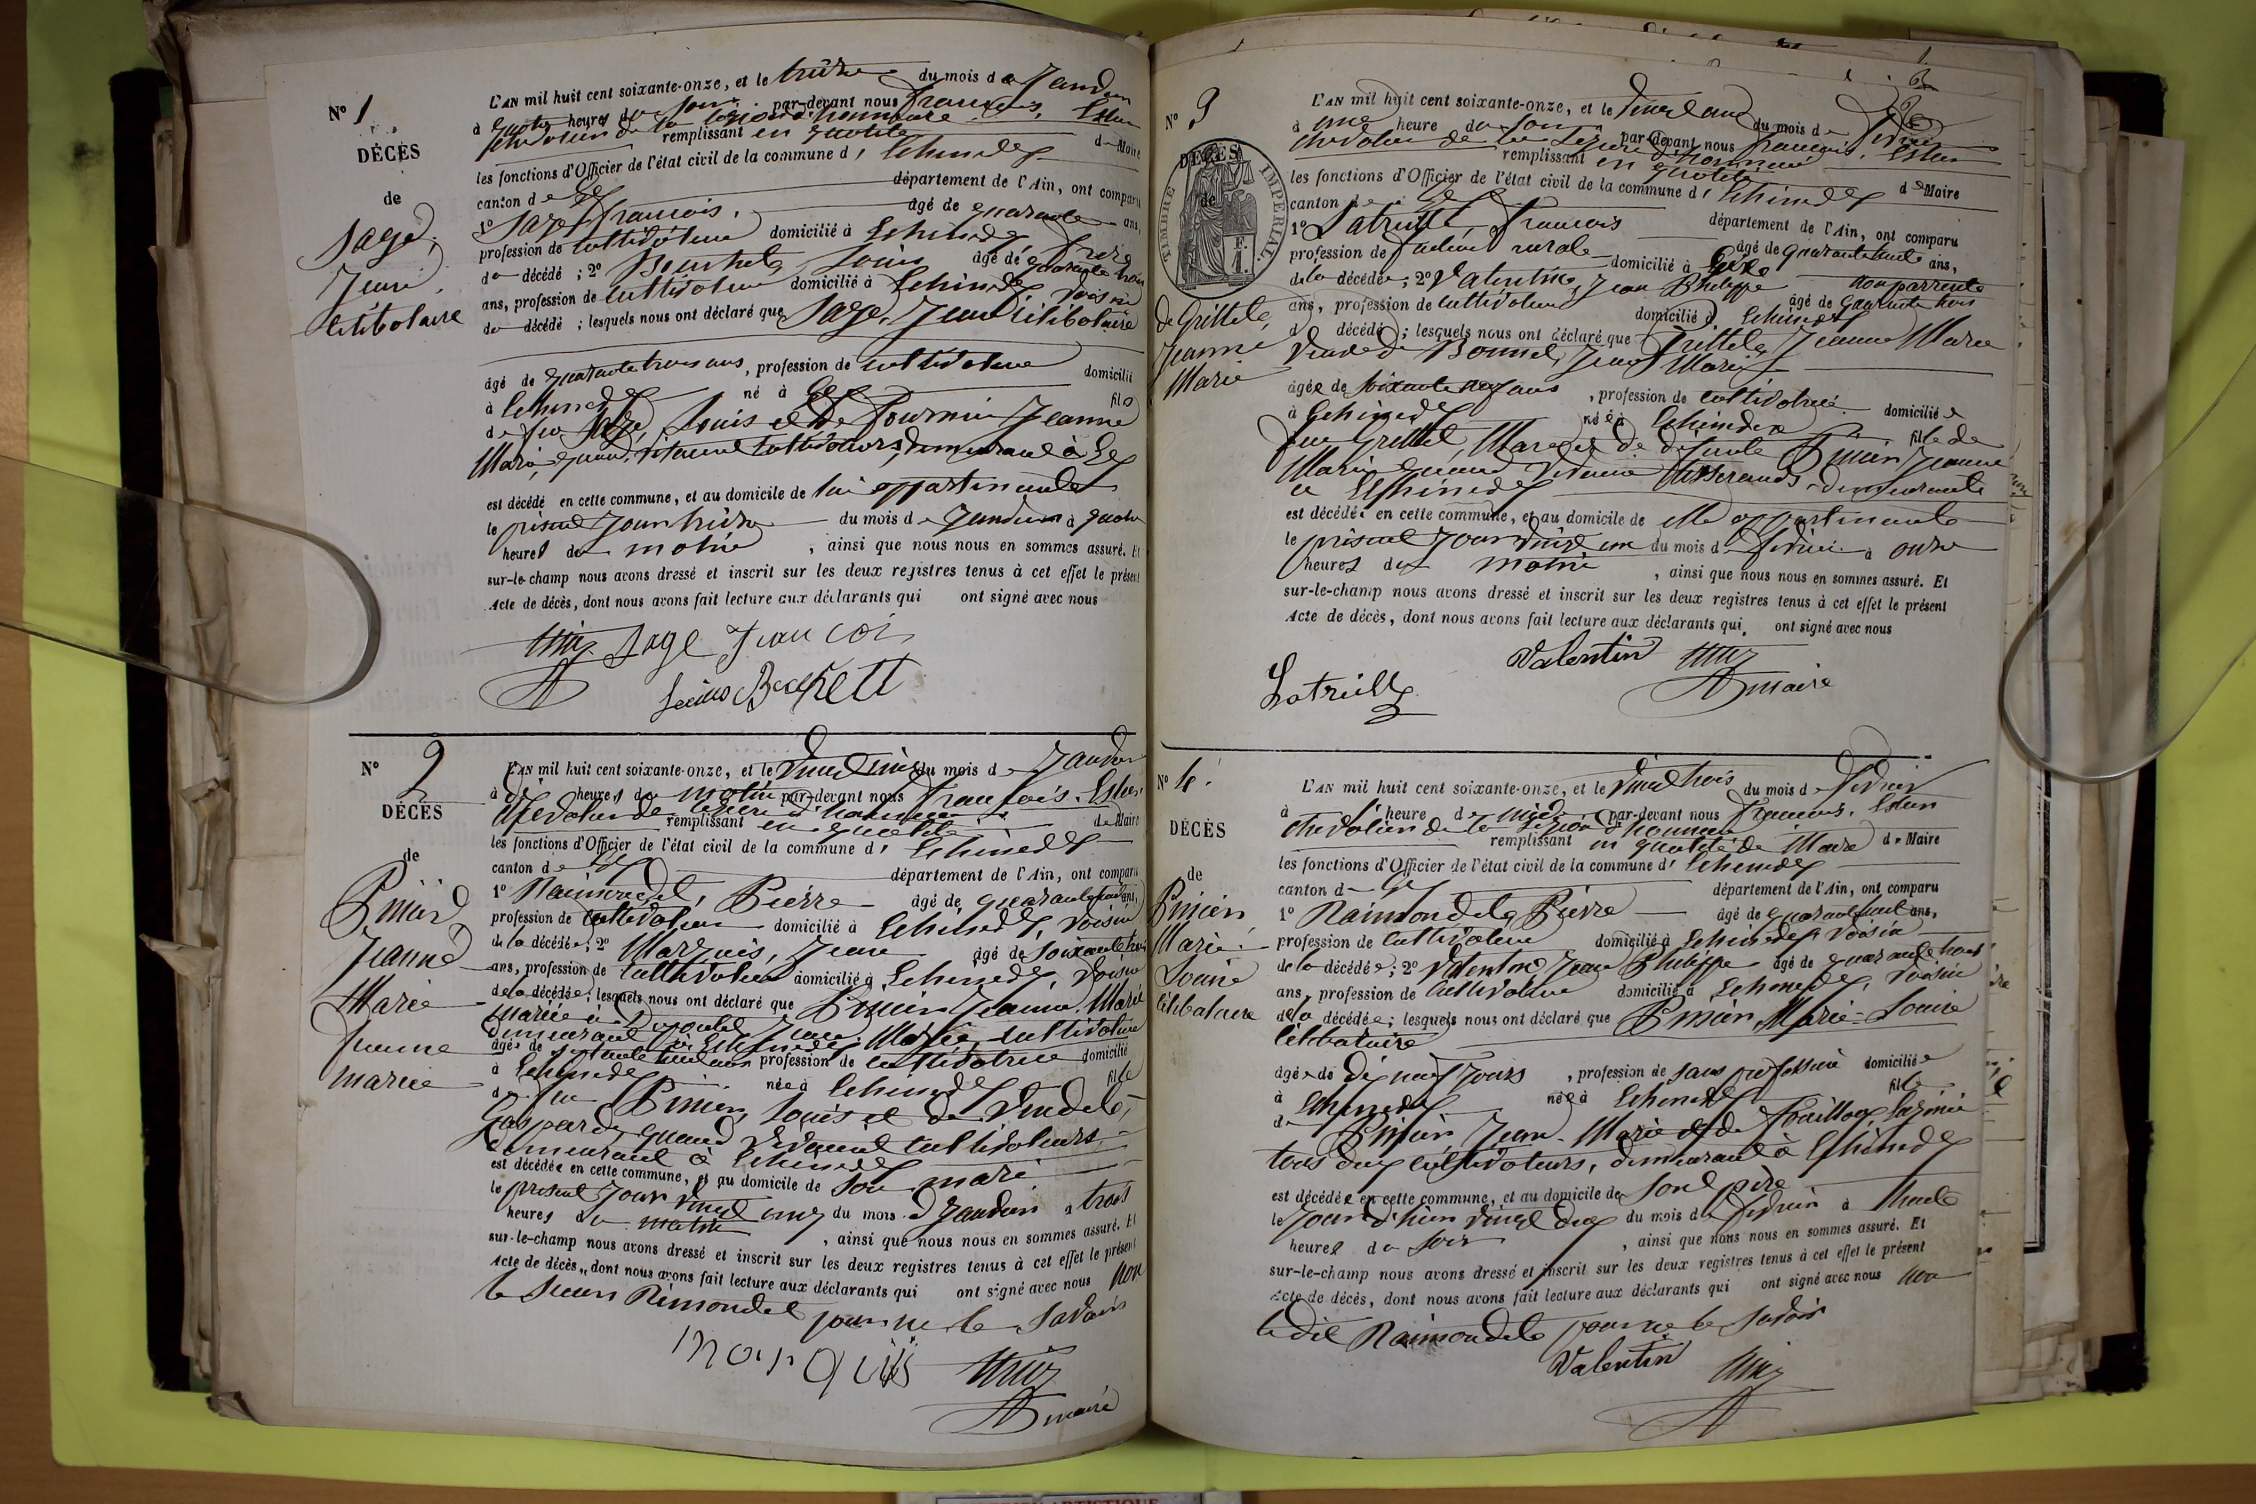 N° 1
DÉCÈS
de
Sage,
Jean
célibataire
L'AN mil huit cent soixante-onze, et le treize du mois de Janvier
à quatre heures du soir par-devant nous François,
chevalier de la légion d'honneur remplissant en qualité de Maire
les fonctions d'Officier de l'état civil de la commune d' Echenevex
canton de Gex département de l'Ain, ont comparu
1° Sage François, âgé de quarante ans,
profession de cultivateur domicilié à Echenevex frère
du décédé ; 2° Louis âgé de quarante trois
ans, profession de cultivateur domicilié à Echenevex voisin
du décédé ; lesquels nous ont déclaré que Sage, Jean célibataire
âgé de quarante trois ans, profession de cultivateur domicilié
à Echenevex né à Gex fils
de feu Sage, Louis et de Fournier Jeanne
Marie, quand vivaient cultivateurs, demeurant à Gex
est décédé en cette commune, et au domicile de lui appartenant
le présent jour treize du mois de Janvier à quatre
heures du matin, ainsi que nous nous en sommes assuré. Et
sur-le-champ nous avons dressé et inscrit sur les deux registres tenus à cet effet le présent
Acte de décès, dont nous avons fait lecture aux déclarants qui ont signé avec nous
Sage François
N° 2
DÉCÈS
de
Jeanne
Marie
femme
mariée
L'AN mil huit cent soixante-onze, et le vingt cinq du mois de Janvier
à dix heures du matin par-devant nous François,
chevalier de légion d'honneur remplissant en qualité de Maire
les fonctions d'Officier de l'état civil de la commune d' Echenevex
canton de Gex département de l'Ain, ont comparu
1° Raimondet, Pierre âgé de quarante huit ans,
profession de cultivateur domicilié à Echenevex, voisin
de la décédée ; 2° Marquis, Jean âgé de soixante trois
ans, profession de cultivateur domicilié à Echenevex, voisin
de la décédée ; lesquels nous ont déclaré que Jeanne Marie
mariée à Jean Marie, cultivateur
demeurant à Echenevex
âgée de ans profession de cultivatrice domicilié
à Echenevex née à Echenevex fille
de feu Louis et de
quand vivaient cultivateurs
demeurant à Echenevex
est décédée en cette commune, et au domicile de son mari
le présent jour vingt cinq du mois de Janvier à trois
heures du matin, ainsi que nous nous en sommes assuré. Et
sur-le-champ nous avons dressé et inscrit sur les deux registres tenus à cet effet le présent
Acte de décès, dont nous avons fait lecture aux déclarants qui ont signé avec nous non
le sieur Rémondet pour ne le savoir
Marquis
maire
N° 3
DÉCÈS
de
TIMBRE IMPÉRIAL.
F.
de Grittet,
Jeanne
Marie
L'AN mil huit cent soixante-onze, et le vingt un du mois de Février
à une heure du soir par-devant nous François,
chevalier de la Légion d'honneur remplissant en qualité de Maire
les fonctions d'Officier de l'état civil de la commune d' Echenevex
canton de Gex département de l'Ain, ont comparu
1° Latreille François âgé de quarante huit ans,
profession de facteur rural domicilié à Gex non parent
de la décédée ; 2° Valentin, Jean Philippe âgé de quarante trois
ans, profession de cultivateur domicilié à Echenevex
d décédé ; lesquels nous ont déclaré que Grittet, Jeanne Marie
veuve de Jean Marie
âgée de ans, profession de cultivatrice domiciliée
à Echenevex née à Echenevex fille de
feu Grittet, et de défunte Jeanne
Marie quand vivaient tisserands demeurant
à Echenevex
est décédée en cette commune, et au domicile de elle appartenant
le présent jour vingt un du mois de Février à onze
heures du matin, ainsi que nous nous en sommes assuré. Et
sur-le-champ nous avons dressé et inscrit sur les deux registres tenus à cet effet le présent
Acte de décès, dont nous avons fait lecture aux déclarants qui ont signé avec nous
Valentin
Latreille
maire
N° 4.
DÉCÈS
de
Marie
Louise
célibataire
L'AN mil huit cent soixante-onze, et le vingt trois du mois de Février
à heure de midi par-devant nous François,
chevalier de la Légion d'honneur remplissant en qualité de Maire de Maire
les fonctions d'Officier de l'état civil de la commune d' Echenevex
canton d Gex département de l'Ain, ont comparu
1° Raimondet, Pierre âgé de quarante huit ans,
profession de cultivateur domicilié à Echenevex voisin
de la décédée ; 2° Valentin, Jean Philippe âgé de quarante trois
ans, profession de cultivateur domicilié à Echenevex, voisin
de la décédée ; lesquels nous ont déclaré que Marie-Louise
célibataire
âgée de dix neuf jours, profession de sans profession domiciliée
à Echenevex née à Echenevex fille
de Jean-Marie et de
tous deux cultivateurs, demeurant à Echenevex
est décédée en cette commune, et au domicile de son père
le jour d'hier vingt deux du mois de Février à
heures du soir, ainsi que nous nous en sommes assuré. Et
sur-le-champ nous avons dressé et inscrit sur les deux registres tenus à cet effet le présent
Acte de décès, dont nous avons fait lecture aux déclarants qui ont signé avec nous non
le dit Raimondet pour ne le savoir
Valentin